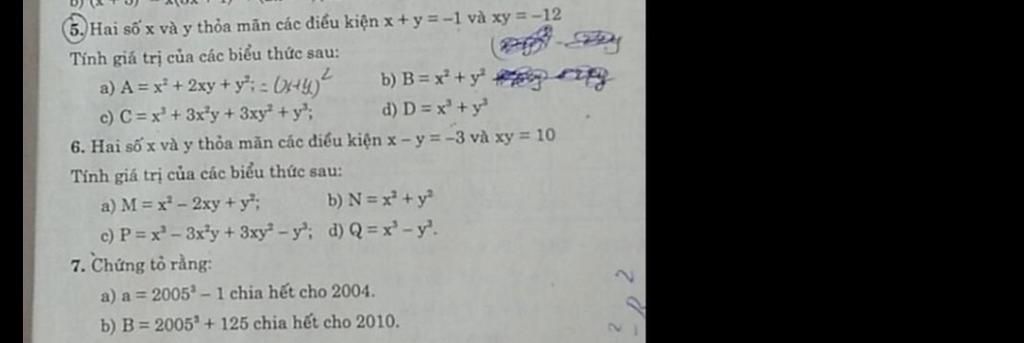 5. Hai số x và y thỏa mãn các điều kiện x + y = –1 và xy = –12
Tính giá trị của các biểu thức sau:
a) A = x² + 2xy + y²; = (x+y)² b) B = x² + y²
c) C = x³ + 3x²y + 3xy² + y³; d) D = x³ + y³
6. Hai số x và y thỏa mãn các điều kiện x – y = –3 và xy = 10
Tính giá trị của các biểu thức sau:
a) M = x² – 2xy + y²; b) N = x² + y²
c) P = x³ – 3x²y + 3xy² – y³; d) Q = x³ – y³.
7. Chứng tỏ rằng:
a) a = 2005³ – 1 chia hết cho 2004.
b) B = 2005³ + 125 chia hết cho 2010.